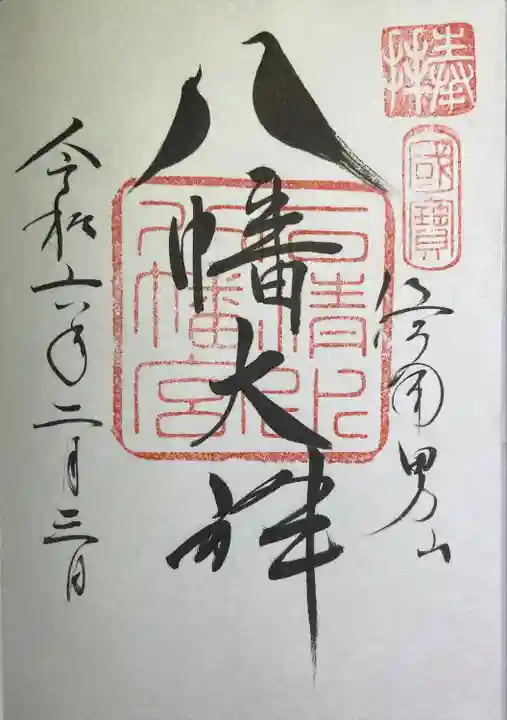 奉拝
國寶
洛南男山
八幡大神
石清水
八幡宮
令和六年二月三日